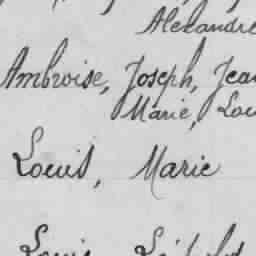 Alexandre
Ambroise, Joseph, Jean
Marie, Lou
Louis, Marie
Louis